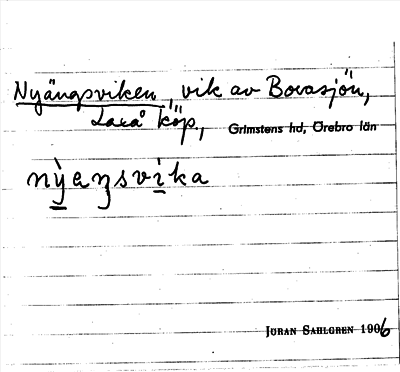 Nyängsviken, vik av Bovasjön,
Laxå köp., Grimstens hd, Örebro län
nỳeŋsvìka
JÖRAN SAHLGREN 1906